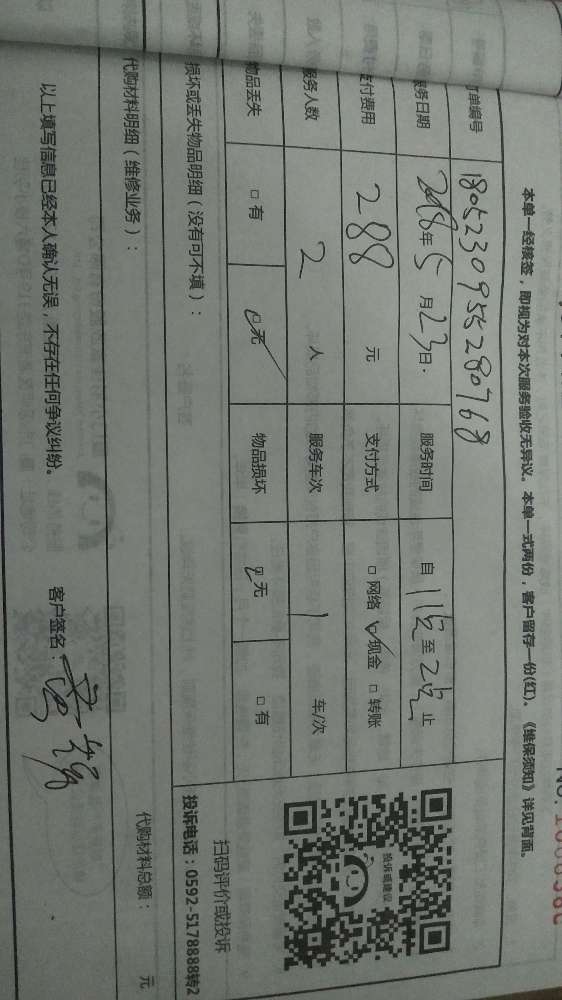 本单一经核签，即视为对本次服务验收无异议。本单一式两份，客户留存一份(红)。《维保须知》详见背面。
单编号 1805230955280768
服务日期 2018年5月23日 服务时间 自 11点 至 2点 止
支付费用 288 元 支付方式 □ 网络 ✓现金 □ 转账
服务人数 2 人 服务车次 1 车/次
物品丢失 □ 有 □ 无 物品损坏 □ 无 □ 有
损坏或丢失物品明细（没有可不填）：
代购材料明细（维修业务）：
代购材料总额： 元
以上填写信息已经本人确认无误，不存在任何争议纠纷。 客户签名：
投诉或建议
扫码评价或投诉
投诉电话：0592-5178888转2